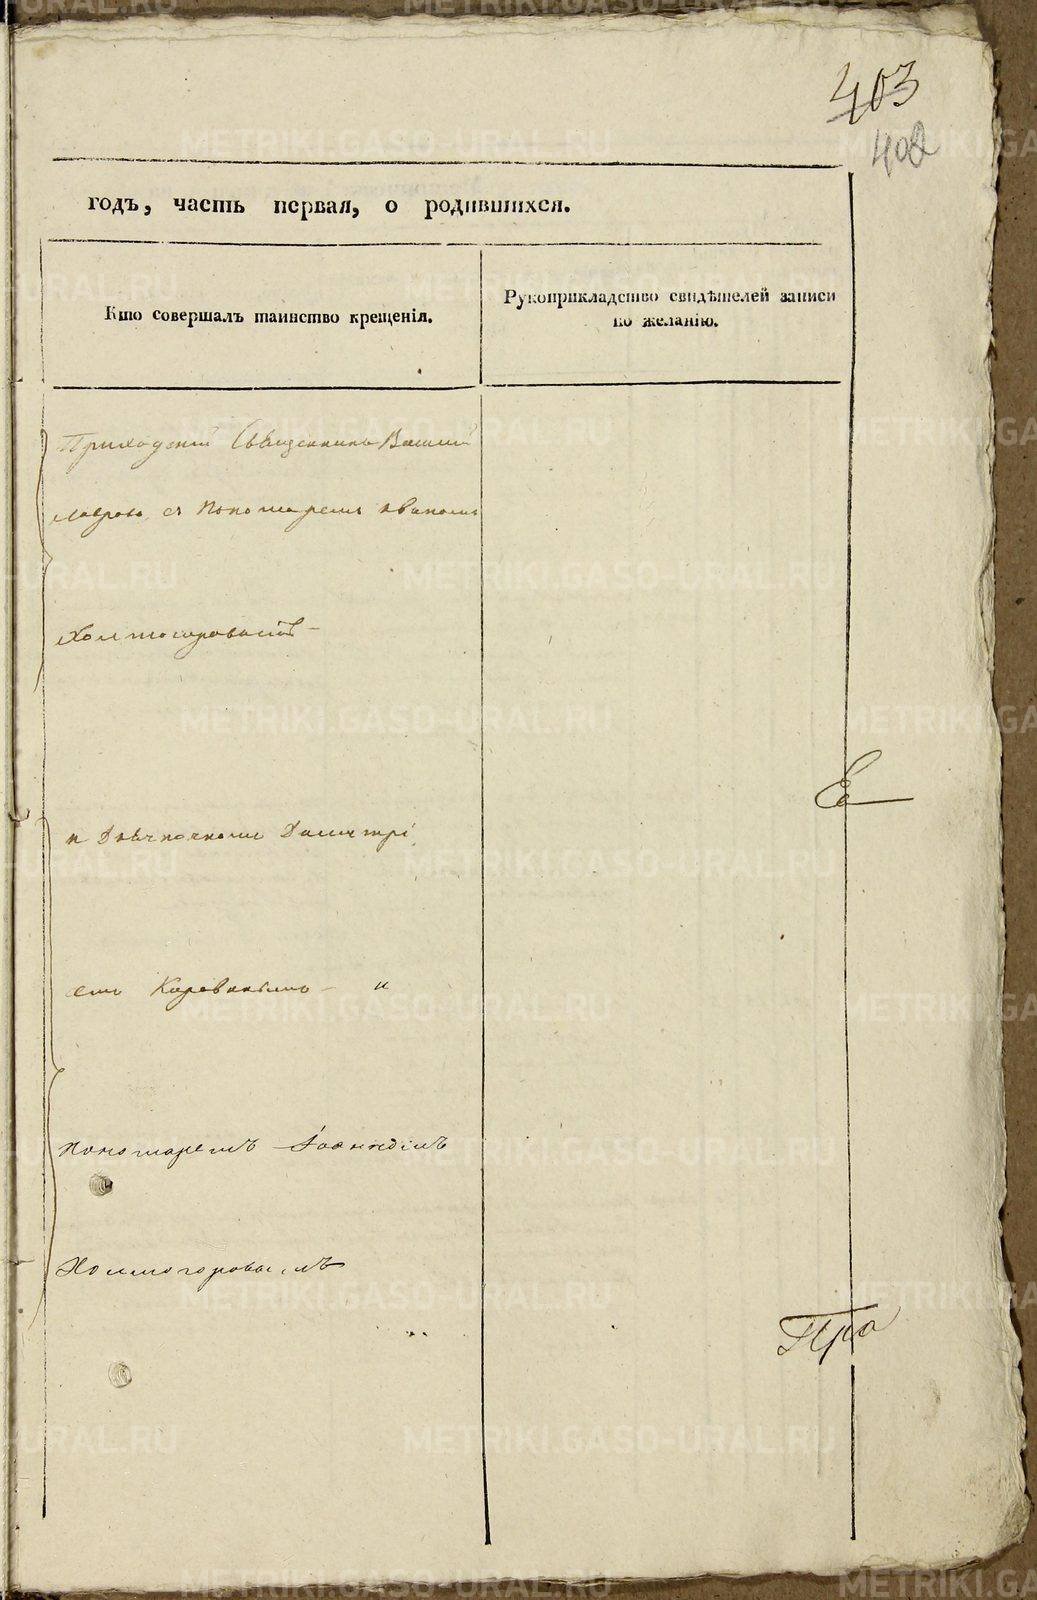 403
402
годъ, часть первая, о родившихся.
Кто совершалъ таинство крещенія.
Рукоприкладство свидѣтелей записи
по желанію.
Приходскій Священникъ Василій
Лавровъ съ пономаремъ Иваномъ
Холмогоровымъ
и Дьячкомъ Димитрі
емъ Коровинымъ и
пономаремъ Іоанномъ
Холмогоровымъ
Пра
METRIKI.GASO-URAL.RU